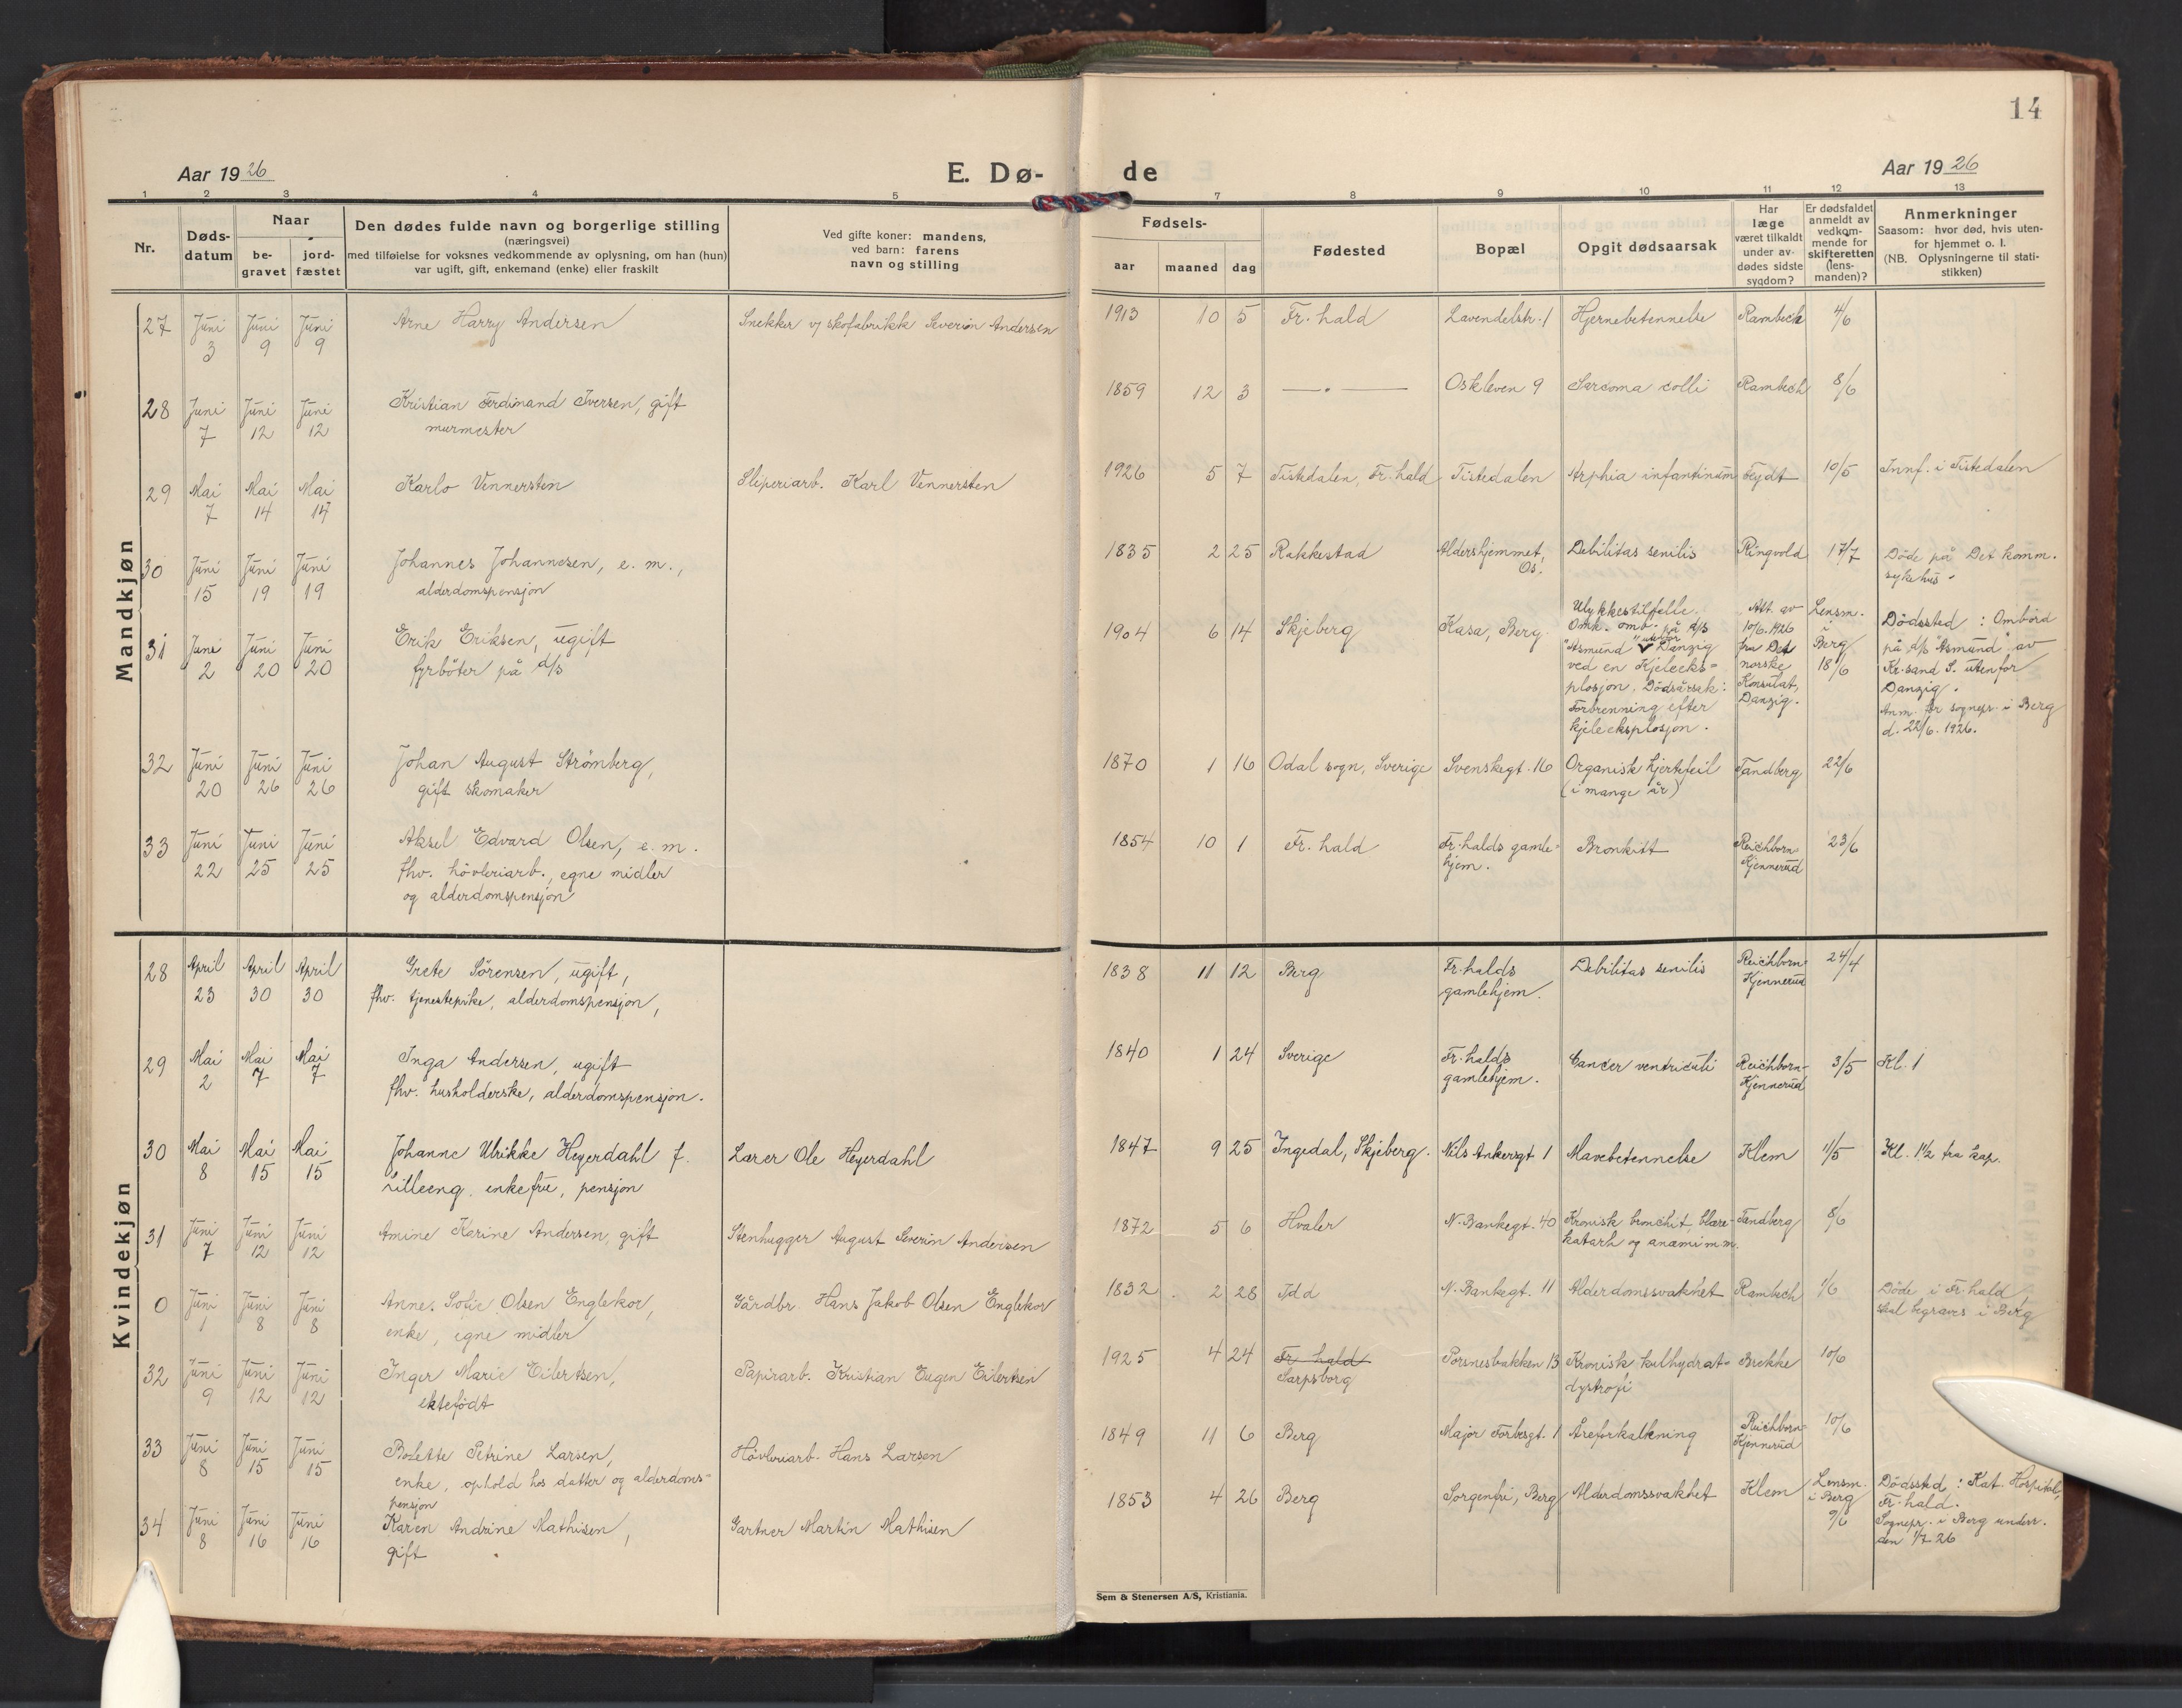 14
Aar 1926
E. Dø-
de
Aar 1926
1 2 3 4 5 7 8 9 10 11 12 13
Nr.
Døds-
datum
Naar
be-
gravet
jord-
fæstet
Den dødes fulde navn og borgerlige stilling
(næringsvei)
med tilføielse for voksnes vedkommende av oplysning, om han (hun)
var ugift, gift, enkemand (enke) eller fraskilt
Ved gifte koner: mandens,
ved barn: farens
navn og stilling
Fødsels-
aar maaned dag
Fødested
Bopæl
Opgit dødsaarsak
Har
læge
været tilkaldt
under av-
dødes sidste
sygdom?
Er dødsfaldet
anmeldt av
vedkom-
mende for
skifteretten
(lens-
manden)?
Anmerkninger
Saasom: hvor død, hvis uten-
for hjemmet o. l.
(NB. Oplysningerne til stati-
stikken)
Mandkjøn
27 Juni 3 Juni 9 Juni 9 Arne Harry Andersen Snekker v/ skofabrikk Severin Andersen 1913 10 5 Fr.hald Lavendelstr. 1 Hjernebetennelse Rambech 4/6
28 Juni 7 Juni 12 Juni 12 Kristian Ferdinand Iversen, gift
murmester
1859 12 3 — " — Oskleven 9 Sarcoma colli Rambech 8/6
29 Mai 7 Mai 14 Mai 14 Karlo Vennersten Sliperiarb. Karl Vennersten 1926 5 7 Tistedalen, Fr.hald Tistedalen infantinum Feydt 10/5 Innf. i Tistedalen
30 Juni 15 Juni 19 Juni 19 Johannes Johannesen, e. m.,
alderdomspensjon
1835 2 25 Rakkestad Aldershjemmet,
Os.
Debilitas senilis Ringvold 17/7 Döde på Det komm.
sykehus.
31 Juni 2 Juni 20 Juni 20 Erik Eriksen, ugift
fyrböter på d/s
1904 6 14 Skjeberg Kasa, Berg
Ulykkestilfelle.
Omk. omb. på d/s
"Asmund" utenfor Danzig
ved en Kjeleeks=
plosjon. Dödsårsak:
Forbrenning efter
kjeleeksplosjon.
Att. av
10/6. 1926
fra Det
norske
Konsulat,
Danzig.
Lensm.
i
Berg
18/6
Dödssted: Ombord
på d/s "Asmund" av
Kr.sand S. utenfor
Danzig.
Anm. for sognepr. i Berg
d. 22/6. 1926.
32 Juni 20 Juni 26 Juni 26 Johan August Strömberg,
gift skomaker
1870 1 16 Odal sogn, Sverige Svenskegt. 16 Organisk hjertefeil
(i mange år)
Tandberg 22/6
33 Juni 22 Juni 25 Juni 25 Aksel Edvard Olsen, e. m.
fhv. hövleriarb., egne midler
og alderdomspensjon
1854 10 1 Fr.hald Fr.halds gamle=
hjem.
Bronkitt Reichborn-
Kjennerud
23/6
Kvindekjøn
28 April 23 April 30 April 30 Grete Sörensen, ugift,
fhv. tjenestepike, alderdomspensjon,
1838 11 12 Berg Fr.halds
gamlehjem.
Debilitas senilis Reichborn-
Kjennerud
24/4
29 Mai 2 Mai 7 Mai 7 Inga Andersen, ugift
fhv. husholderske, alderdomspensjon.
1840 1 24 Sverige Fr.halds
gamlehjem.
Cancer ventriculi Reichborn-
Kjennerud
3/5 Kl. 1
30 Mai 8 Mai 15 Mai 15 Johanne Ulrikke Heyerdahl f.
Lilleeng. enkefru, pensjon
Lærer Ole Heyerdahl 1847 9 25 Ingedal, Skjeberg. Nils Ankersgt 1 Mavebetennelse Klem 11/5 Kl. 1½ fra kap.
31 Juni 7 Juni 12 Juni 12 Amine Karine Andersen, gift Stenhugger August Severin Andersen 1872 5 6 Hvaler N. Bankegt. 40 Kronisk bronchit blære
katarh og anæmi m.m.
Tandberg 8/6
0 Juni 1 Juni 8 Juni 8 Anne. Sofie Olsen Englekor,
enke, egne midler
Gårdbr. Hans Jakob Olsen Englekor 1832 2 28 Idd N. Bankegt. 11 Alderdomssvakhet Rambech 1/6 Döde i Fr.hald
skal begraves i Berg
32 Juni 9 Juni 12 Juni 12 Inger Marie Eilertsen,
ektefödt
Papirarb. Kristian Eugen Eilertsen 1925 4 24 Fr hald
Sarpsborg
Porsnesbakken 13 Kronisk kulhydrat-
dystrofi
Brekke 10/6
33 Juni 8 Juni 15 Juni 15 Bolette Petrine Larsen,
enke, ophold hos datter og alderdoms=
pensjon
Hövleriarb. Hans Larsen 1849 11 6 Berg Major Forbesgt. 1 Åreforkalkning Reichborn=
Kjennerud
10/6
34 Juni 8 Juni 16 Juni 16 Karen Andrine Mathisen,
gift
Gartner Martin Mathisen 1853 4 26 Berg Sorgenfri, Berg Alderdomssvakhet Klem Lensm.
i Berg
9/6
Dödssted: Kat. Hospital,
Fr.hald.
Sognepr. i Berg underr.
den 1/7 26
Sem & Stenersen A/S, Kristiania.